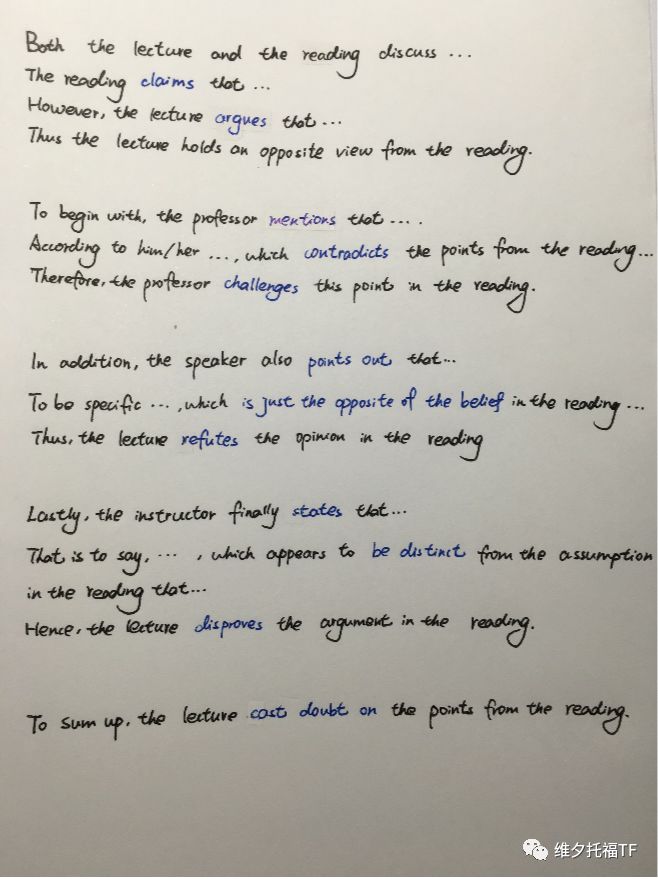 Both the lecture and the reading discuss ...
The reading claims that ...
However, the lecture argues that ...
Thus the lecture holds an opposite view from the reading.
To begin with, the professor mentions that ... .
According to him/her ..., which contradicts the points from the reading ...
Therefore, the professor challenges this point in the reading.
In addition, the speaker also points out that ...
To be specific ..., which is just the opposite of the belief in the reading ...
Thus, the lecture refutes the opinion in the reading
Lastly, the instructor finally states that ...
That is to say, ... , which appears to be distinct from the assumption
in the reading that ...
Hence, the lecture disproves the argument in the reading.
To sum up, the lecture cast doubt on the points from the reading.
维夕托福TF